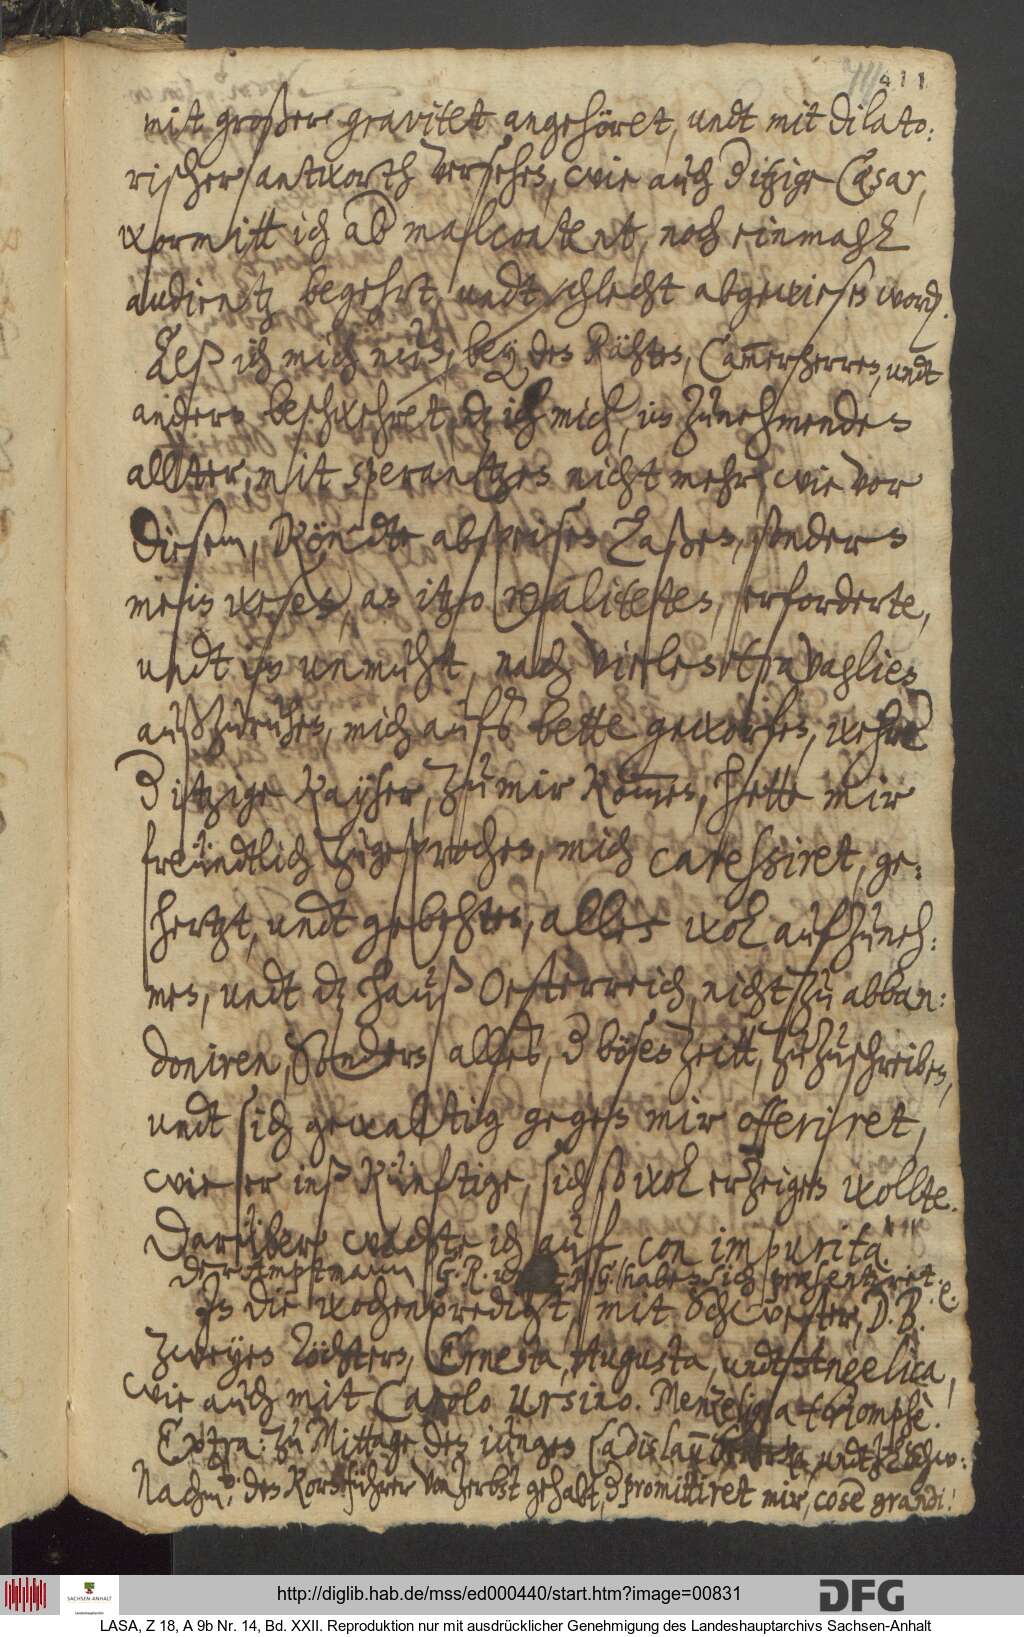 411
mit großer gravitet angehöret, undt mit dilato:
rischer antworth versehen, wie auch d itzige Cæsar,
wormitt ich alß malcontent, noch einmahl
audientz begehrt, undt schlecht abgewiesen word.
Alß ich mich nun, bey den Rähten, Cam̄erherren, undt
andern beschwehret, dz ich mich, in zunehmenden
allter, mit sperantzen nicht mehr, wie vor
diesem, köndte abspeisen laßen, sondern
mein wesen, an itzo realiteten, erforderte,
undt in unmuht, nach vielen travaglien
außzuruhen, mich aufs bette geworfen, wehre
d itzige Kayser, zu mir kom̄en, hette mir
freündtlich zugesprochen, mich caressiret, ge:
hertzt, undt gebehten, alles wol aufzuneh:
men, undt dz hauß Oesterreich, nicht zu abban:
doniren, Sondern alles, d bösen zeitt, zuzuschreiben,
undt sich gewaltig gegen mir offeriret,
wie er inß künftige, sich so wol erzeigen wollte.
Darüber wachte ich auf, con impurità.
Der Amptmann G. R. habes sich præsentiret.
In die wochenpredigt, mit Schwester, D. B. e.
zweyen Töchtern, Ernesta, Augusta, undt Angelica,
wie auch mit Carolo Ursino. Menzelius a triomphè.
Extra: zu Mittage den iungen Ladislaum undt
Nachm: den Kornführer von Zerbst gehabt, d promittiret mir, cose grandi!
http://diglib.hab.de/mss/ed000440/start.htm?image=00831
DFG
SACHSEN-ANHALT
Landeshauptarchiv
LASA, Z 18, A 9b Nr. 14, Bd. XXII. Reproduktion nur mit ausdrücklicher Genehmigung des Landeshauptarchivs Sachsen-Anhalt